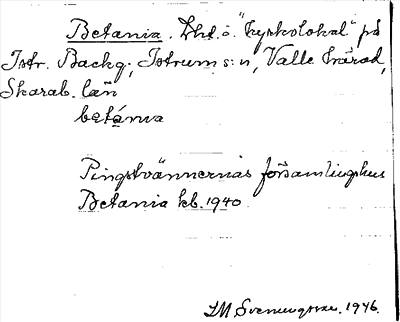 Betania. Lht. o. "kyrkolokal" på
Istr. Backg; Istrum s:n, Valle härad,
Skarab. län
betánıa
Pingstvännernas församlingshus
Betania kb. 1940
1946.